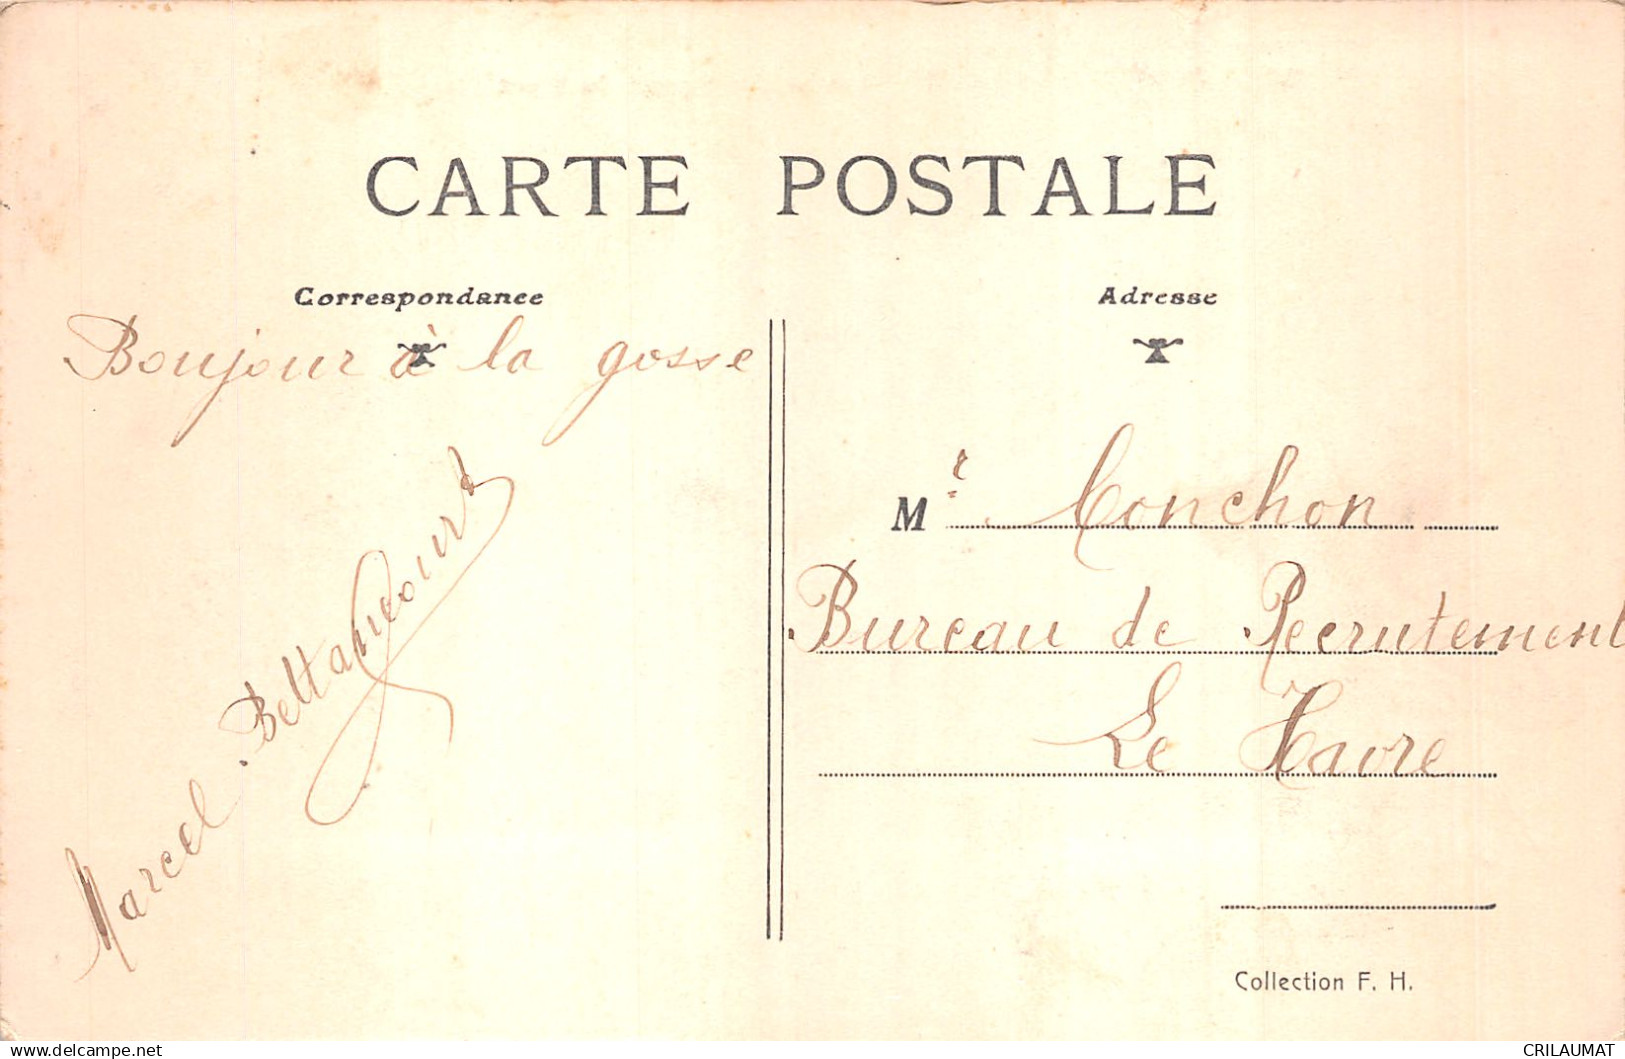 CARTE POSTALE
Correspondance
Bonjour à la gosse
Marcel Bettancourt
Adresse
Mr Conchon
Bureau de Recrutement
Le Havre
Collection F. H.
www.delcampe.net
CRILAUMAT